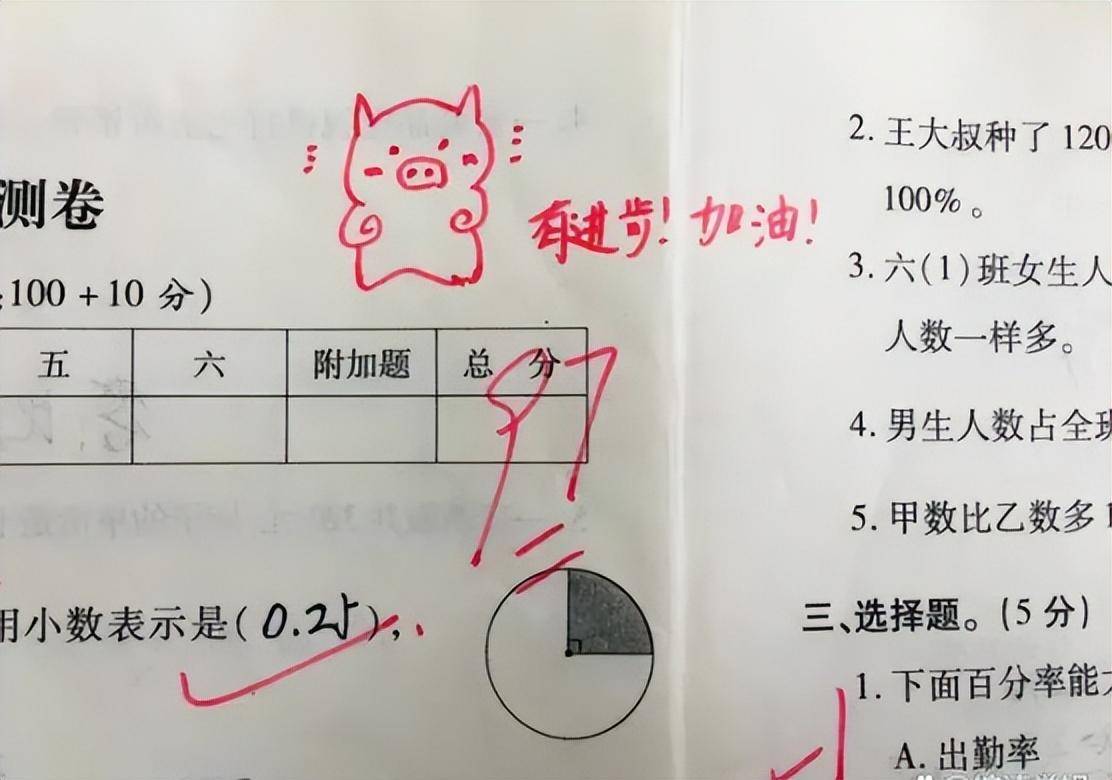 测卷
100 + 10 分)
五 六 附加题 总 分
有进步! 加油!
97
用小数表示是( 0.25 ),
2. 王大叔种了 120
100%。
3. 六(1)班女生人
人数一样多。
4. 男生人数占全班
5. 甲数比乙数多
三、选择题。(5 分)
1. 下面百分率能
A. 出勤率